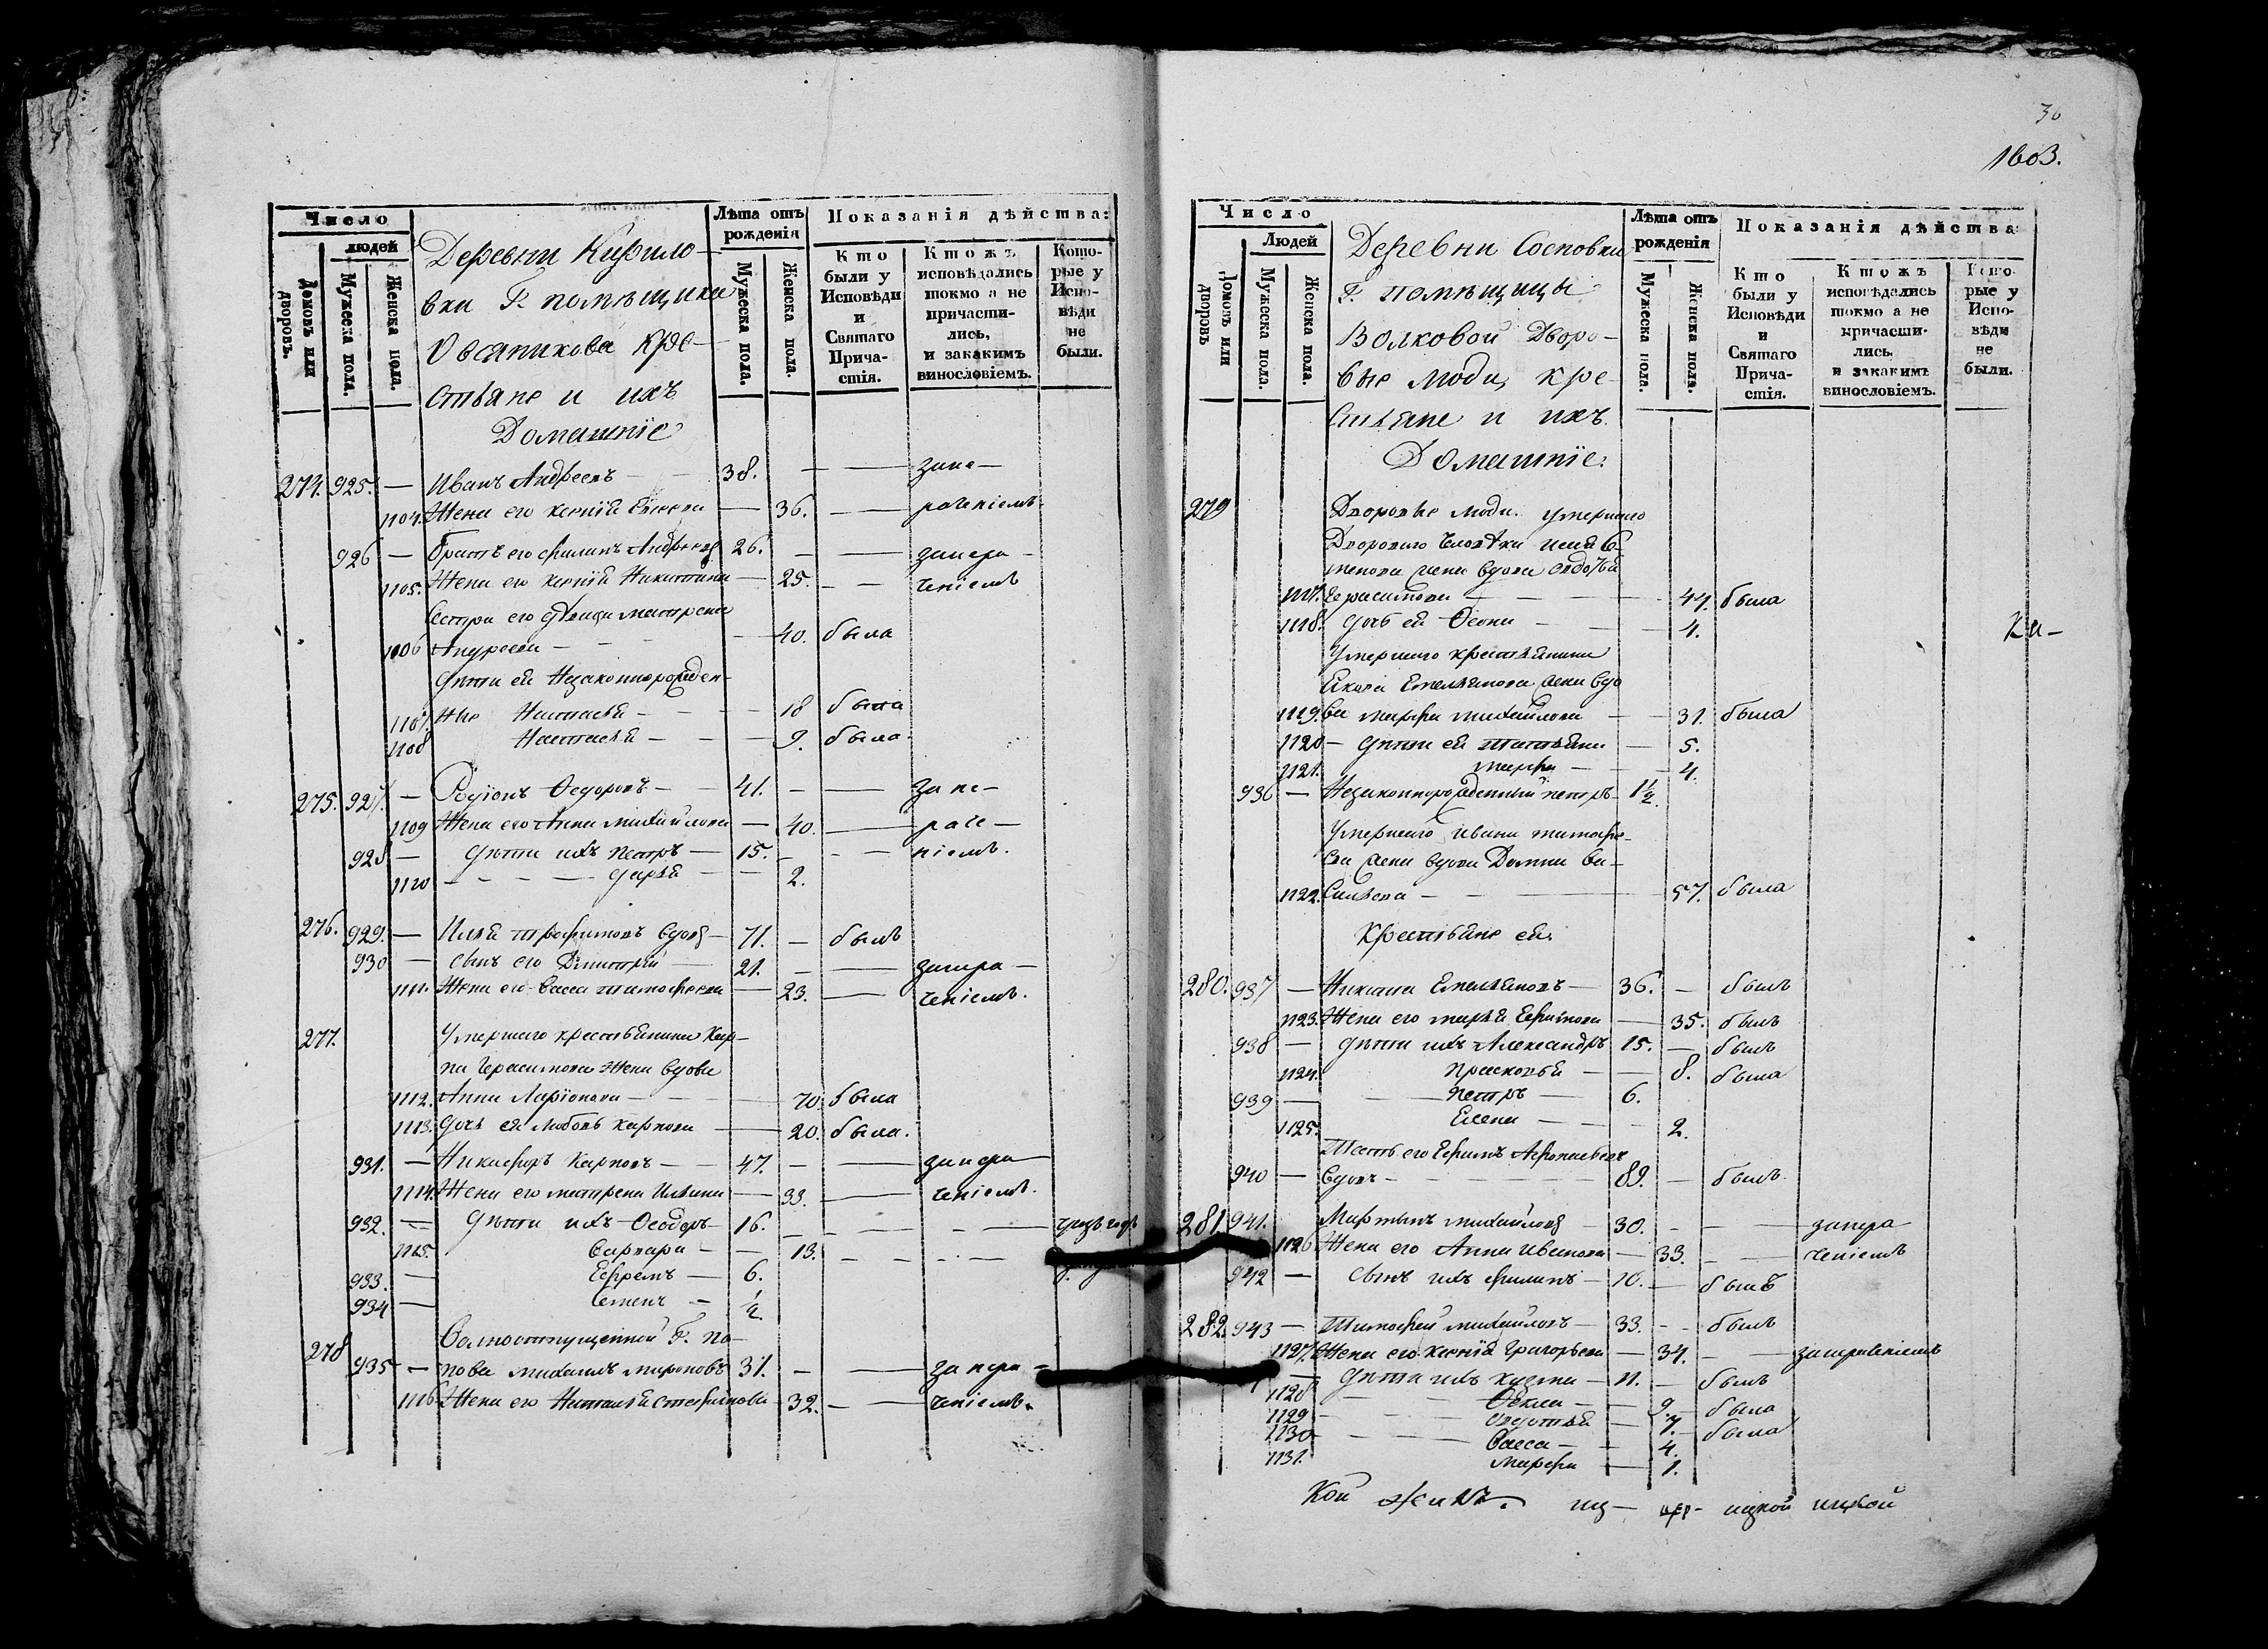 Число
людей
Домовъ или дворовъ.
Мужеска пола.
Женска пола.
Деревни Кирило-
вки Г. помѣщика
Овсяникова кре-
стьяне и ихъ
Домашніе
Лѣта отъ рожденія
Мужеска пола.
Женска пола.
Показанія дѣйства:
Кто были у Исповѣди и Святаго Причастія.
Ктожъ исповѣдались токмо а не причастились, и закакимъ винословіемъ.
Которые у Исповѣди не были.
274. 925. — Иванъ Андреевъ — 38. — — запе-
1104. Жена его Ксенія — 36. — — раченіемъ.
926 — Братъ его Филипъ Андреевъ 26. — — запера-
1105. Жена его Ксенія Никитина — 25. — — ченіемъ
Сестра его дѣвица Матрена
1106 Андреева — — 40. была
Дѣти ея Незаконнорожден-
1107 ные Наталья — — 18 была
1108 Настасья — — 9. была
275. 927. — Родіонъ Ѳедоровъ — 41. — — запе-
1109 Жена его Анна Михайлова — 40. — раче-
928 — Дѣти ихъ Петръ — 15. — — ніемъ.
1110 — — — Дарья — — 2.
276. 929. — Илья Трофимовъ вдовъ — 71. — былъ
930 — Сынъ его Дмитрій — 21. — — запера-
1111. Жена его Васса Тимофеева — 23. — ченіемъ.
277. Умершаго крестьянина Кар-
па Герасимова Жена вдова
1112. Анна Ларіонова — — 70. была
1113. Дочь ея Любовь Карпова — 20. была.
931. — Никифоръ Карповъ — 47. — — запера-
1114. Жена его Матрена Ильина — 33. — ченіемъ.
932. — Дѣти ихъ Ѳеодоръ — 16. — — —
1115. Варвара — — 13. — — —
933. — Ефремъ — 6.
934 — Семенъ — ½.
278 Волноотпущенной Г. По-
935 — пова Михаилъ Мироновъ 31. — — запера-
1116 Жена его Наталья Стефанова — 32. — — ченіемъ.
30
1603.
Число
Людей
Домовъ или дворовъ
Мужеска пола.
Женска пола.
Деревни Сосновки
Г. помѣщицы
Волковой Дворо-
вые люди, кре-
стьяне и ихъ
Домашніе.
Лѣта отъ рожденія
Мужеска пола.
Женска пола.
Показанія дѣйства:
Кто были у Исповѣди и Святаго Причастія.
Ктожъ исповѣдались токмо а не причастились, и закакимъ винословіемъ.
Которые у Исповѣди не были.
279 Дворовые люди. Умершаго
Двороваго человѣка
жена вдова Авдотья
1117. Герасимова — — 44. была
1118. Дочь ея — — 4.
Ка-
Умершаго крестьянина
Якова Емельянова жена вдо
1119. ва Марфа Михайлова — — 31. была
1120 — Дѣти ея Татьяна — 5.
1121. Марфа — — 4.
936 — Незаконнорожденный Петръ — 1½.
Умершаго Ивана Тимофе-
ева жена вдова Домна Ва-
1122. сильева — — 57. была
Крестьяне ея.
280. 937 — Емельяновъ — 36. — былъ
1123. Жена его Марья Ефимова — 35. былъ
938 — Дѣти ихъ Александръ 15. — былъ
1124. Прасковья — — 8. была
939 — — Петръ — 6.
1125. Елена — — 2.
Тесть его Ефимъ
940 — вдовъ — — 89. — былъ.
281 941. Мартынъ Михайловъ — 30. — — запера
1126 Жена его Анна Иванова — 33. — — ченіемъ
942 — Сынъ ихъ Филипъ — 10. — былъ
282. 943 — Тимофей Михайловъ — 33. — — былъ
1127. Жена его Ксенія Григорьева — 34. — — запираченіемъ
— Дѣти ихъ Кузма — 11. — былъ
1128 Ѳекла — — 9. — была
1129 — Авдотья — 7. — была
1130 — Васса — — 4.
1131. Марфа — 1.